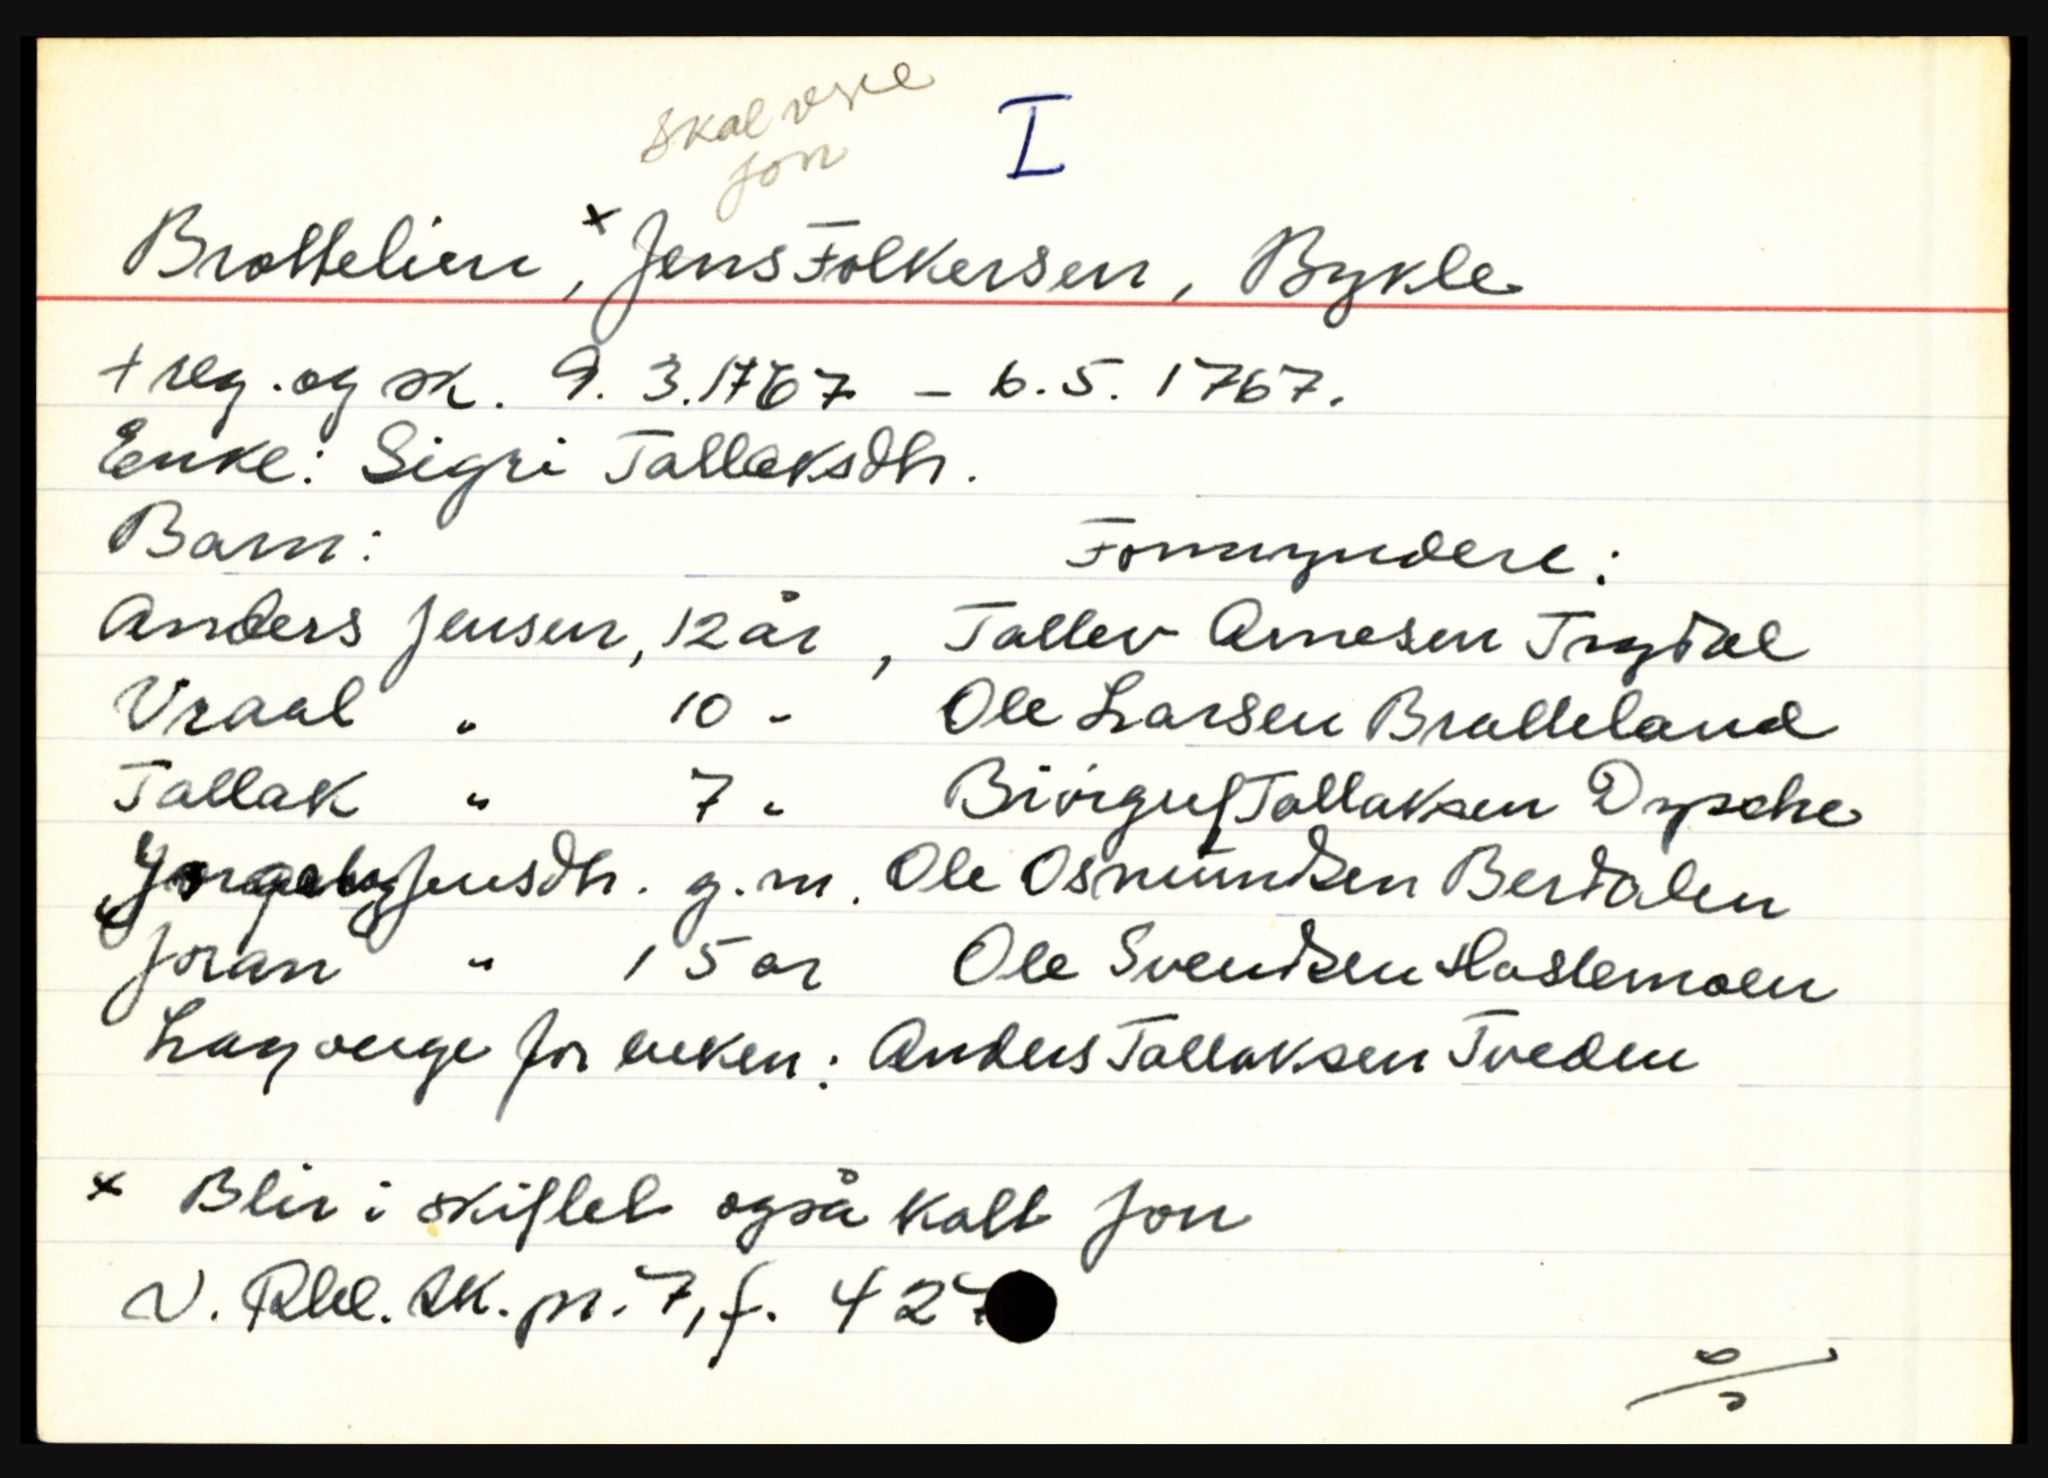 skal være
Jon
I
Brottelien, x Jens Folkersen, Bykle
+ reg. og sk. 9.3.1767 - 6.5.1767.
Enke: Sigri Tallaksdtr.
Barn: Formyndere:
Anders Jensen, 12 år, Tallev Arnesen Trydal
Vraal " 10 - Ole Larsen Bratteland
Tallak " 7 " Biørguf Tallaksen Dysche
Jensdtr. g.m. Ole Osmundsen Berdalen
Joran " 15 år Ole Svendsen Haslemoen
Lagverge for enken: Anders Tallaksen Tveden
x Blir i skiftet også kalt Jon
V. Rbl. sk. pr. 7, f. 427